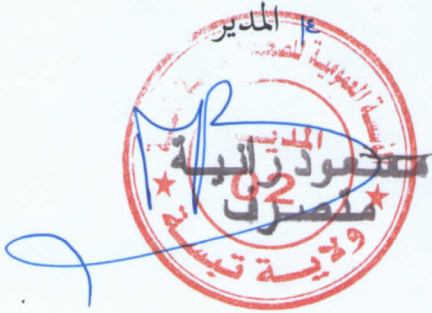 المدير
المؤسسة العمومية للصحة
المديـــر
محمود رانية
02
متصرف
ولاية تبسة